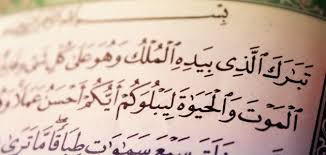 بِسْـ
تَبَٰرَكَ ٱلَّذِى بِيَدِهِ ٱلْمُلْكُ وَهُوَ عَلَىٰ كُلِّ
ٱلْمَوْتَ وَٱلْحَيَوٰةَ لِيَبْلُوَكُمْ أَيُّكُمْ أَحْسَنُ عَمَلًا
خَلَقَ سَبْعَ سَمَٰوَٰتٍ طِبَاقًا مَّا تَرَىٰ